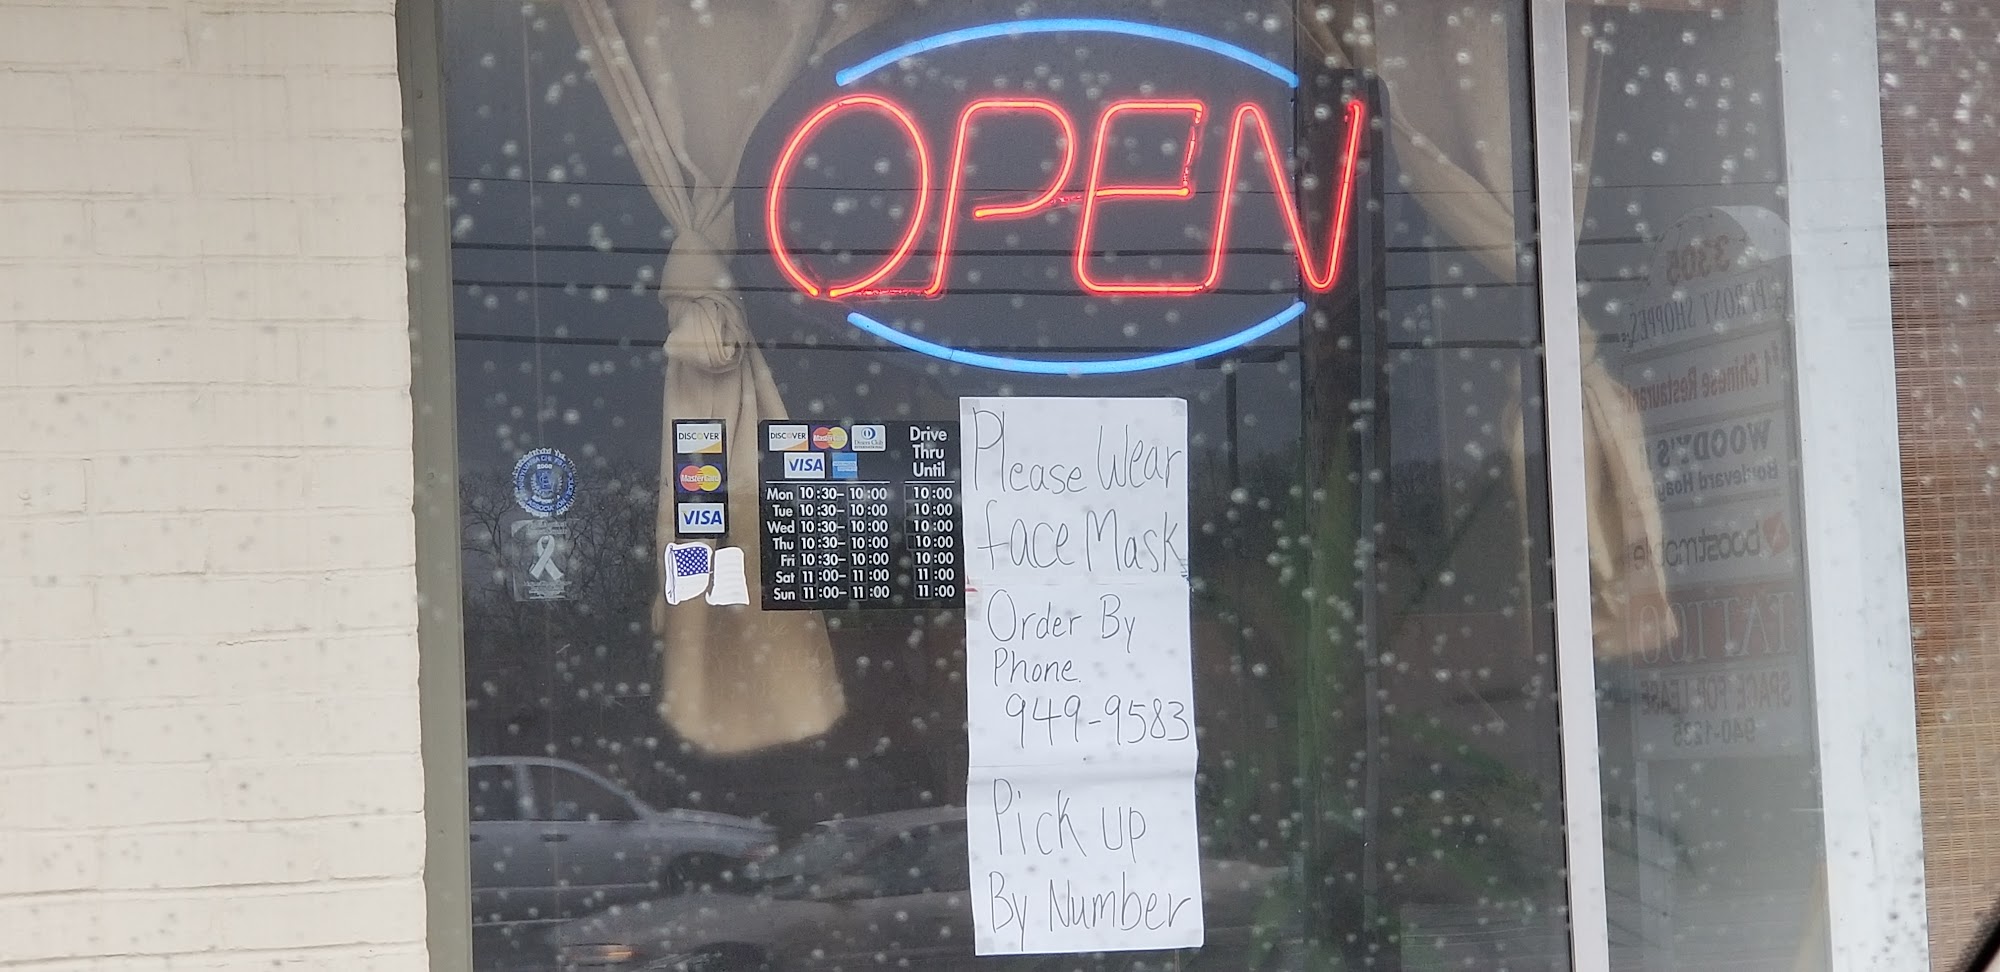 OPEN
DISCOVER
MasterCard
VISA
DISCOVER
MasterCard
Diners Club
VISA
Drive
Thru
Until
Mon 10:30– 10:00 10:00
Tue 10:30– 10:00 10:00
Wed 10:30– 10:00 10:00
Thu 10:30– 10:00 10:00
Fri 10:30– 10:00 10:00
Sat 11:00– 11:00 11:00
Sun 11:00– 11:00 11:00
Please Wear
face Mask
Order By
Phone.
949-9583
Pick up
By Number
3305
SHOPPES
#1 Chinese Restaurant
WOODY'S
Boulevard
boostmobile
TATTOO
SPACE FOR LEASE
940-1235